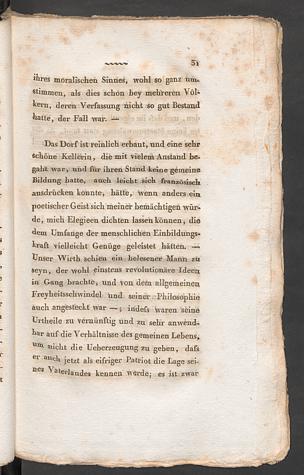 51
ihres moralischen Sinnes, wohl so ganz um-
stimmen, als dies schon bey mehreren Völ-
kern, deren Verfassung nicht so gut Bestand
hatte, der Fall war. —
Das Dorf ist reinlich erbaut, und eine sehr
schöne Kellerin, die mit vielem Anstand be-
gabt war, und für ihren Stand keine gemeine
Bildung hatte, auch leicht sich französisch
ausdrücken konnte, hätte, wenn anders ein
poetischer Geist sich meiner bemächtigen wür-
de, mich Elegieen dichten lassen können, die
dem Umfange der menschlichen Einbildungs-
kraft vielleicht Genüge geleistet hätten. —
Unser Wirth schien ein belesener Mann zu
seyn, der wohl einstens revolutionäre Ideen
in Gang brachte, und von dem allgemeinen
Freyheitsschwindel und seiner Philosophie
auch angesteckt war —; indess waren seine
Urtheile zu vernünftig und zu sehr anwend-
bar auf die Verhältnisse des gemeinen Lebens,
um nicht die Ueberzeugung zu geben, dass
er auch jetzt als eifriger Patriot die Lage sei-
nes Vaterlandes kennen werde; es ist zwar